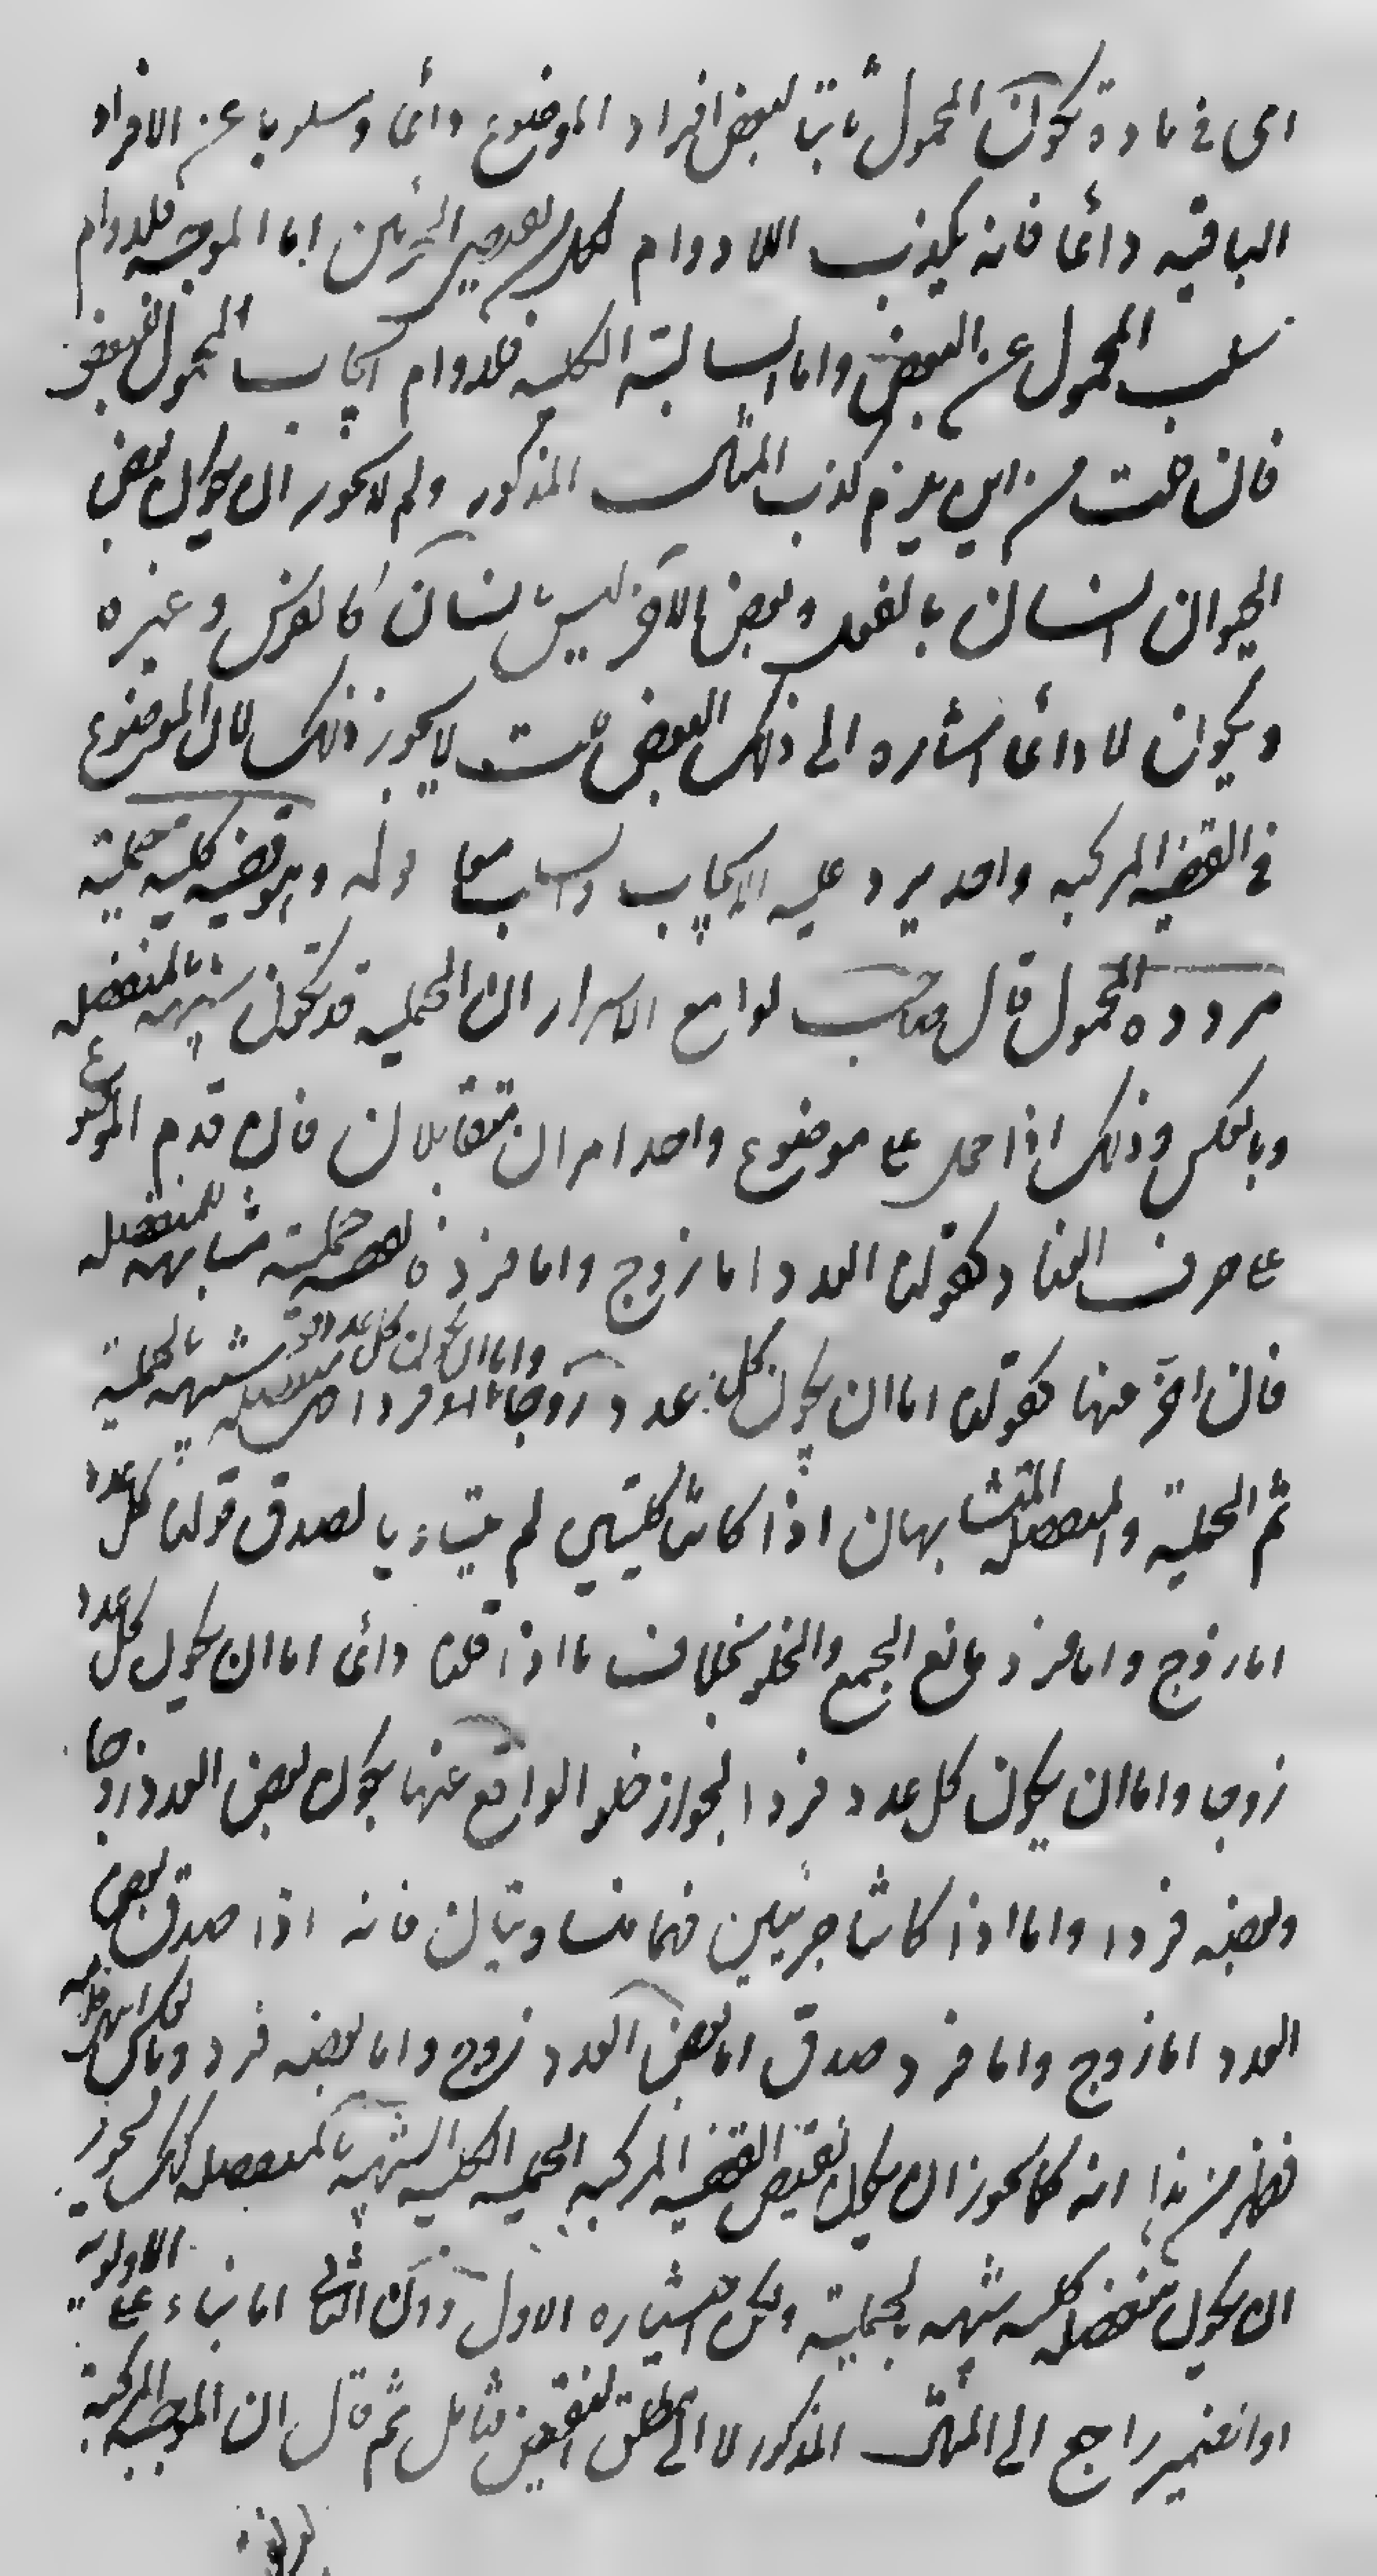 اى فى مادة يكون المحمول ثابتا لبعض افراد الموضوع دائما ومسلوبا عن الافراد
الباقية دائما فانه يكذب اللادوام المحمول للبعض واما الموجبه فلدوام
سلب المحمول عن البعض واما السالبة الكليه فلدوام ايجاب المحمول للبعض
فان قلت من اين يلزم كذب المثال المذكور ولم لا يجوز ان يكون بعض
الحيوان انسان بالفعل وبعض الآخر ليس بانسان كالفرس وغيره
ويكون لا دائما اشاره الى ذلك البعض قلت لا يجوز ذلك لان الموضوع
فى القضية المركبه واحد يرد عليه الايجاب والسلب معا قوله وهو قضيه كليه حملية
مردده المحمول قال صاحب لوامع الاسرار ان الحمليه قد تكون شبيهه بالمنفصله
وبالعكس وذلك اذا حمل على موضوع واحد امران متقابلان فان قدم الموضوع
على حرف العناد كقولنا العدد اما زوج واما فرد فالقضيه حملية مشابهه للمنفصله
فان اخر عنها كقولنا اما ان يكون كل عدد زوجا واما ان يكون كل عدد فردا منفصله شبيهه بالحملية
ثم الحملية والمنفصله المتشابهان اذا كانتا كليتين لم يتساويا لصدق قولنا كل عدد
اما زوج واما فرد مانع الجمع والخلو بخلاف ما اذا قلنا دائما اما ان يكون كل عدد
زوجا واما ان يكون كل عدد فردا لجواز خلو الواقع عنها بكون بعض العدد زوجا
وبعضه فردا واما اذا كانتا جزئيتين فهما متساويتان فانه اذا صدق بعض
العدد اما زوج واما فرد صدق اما بعض العدد زوج واما بعضه فرد وبالعكس
فظهر من هذا انه كما يجوز ان يكون نقيض القضيه المركبه الحمليه الكليه الشبيهه بالمنفصله كذلك يجوز
ان يكون منفصله كليه شبيهه بالحملية ولكن اختياره الاول دون الثانى اما بناء على الاولويه
او الضمير راجع الى المثال المذكور لا الى مطلق النقيض فتأمل ثم قال ان الموجبه المركبة